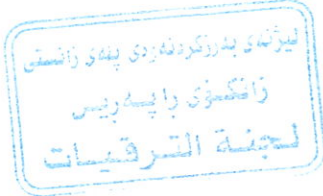 لیژنەی بەرزکردنەوەی پلەی زانستی
زانکۆی راپەرین
لجنة الترقيات